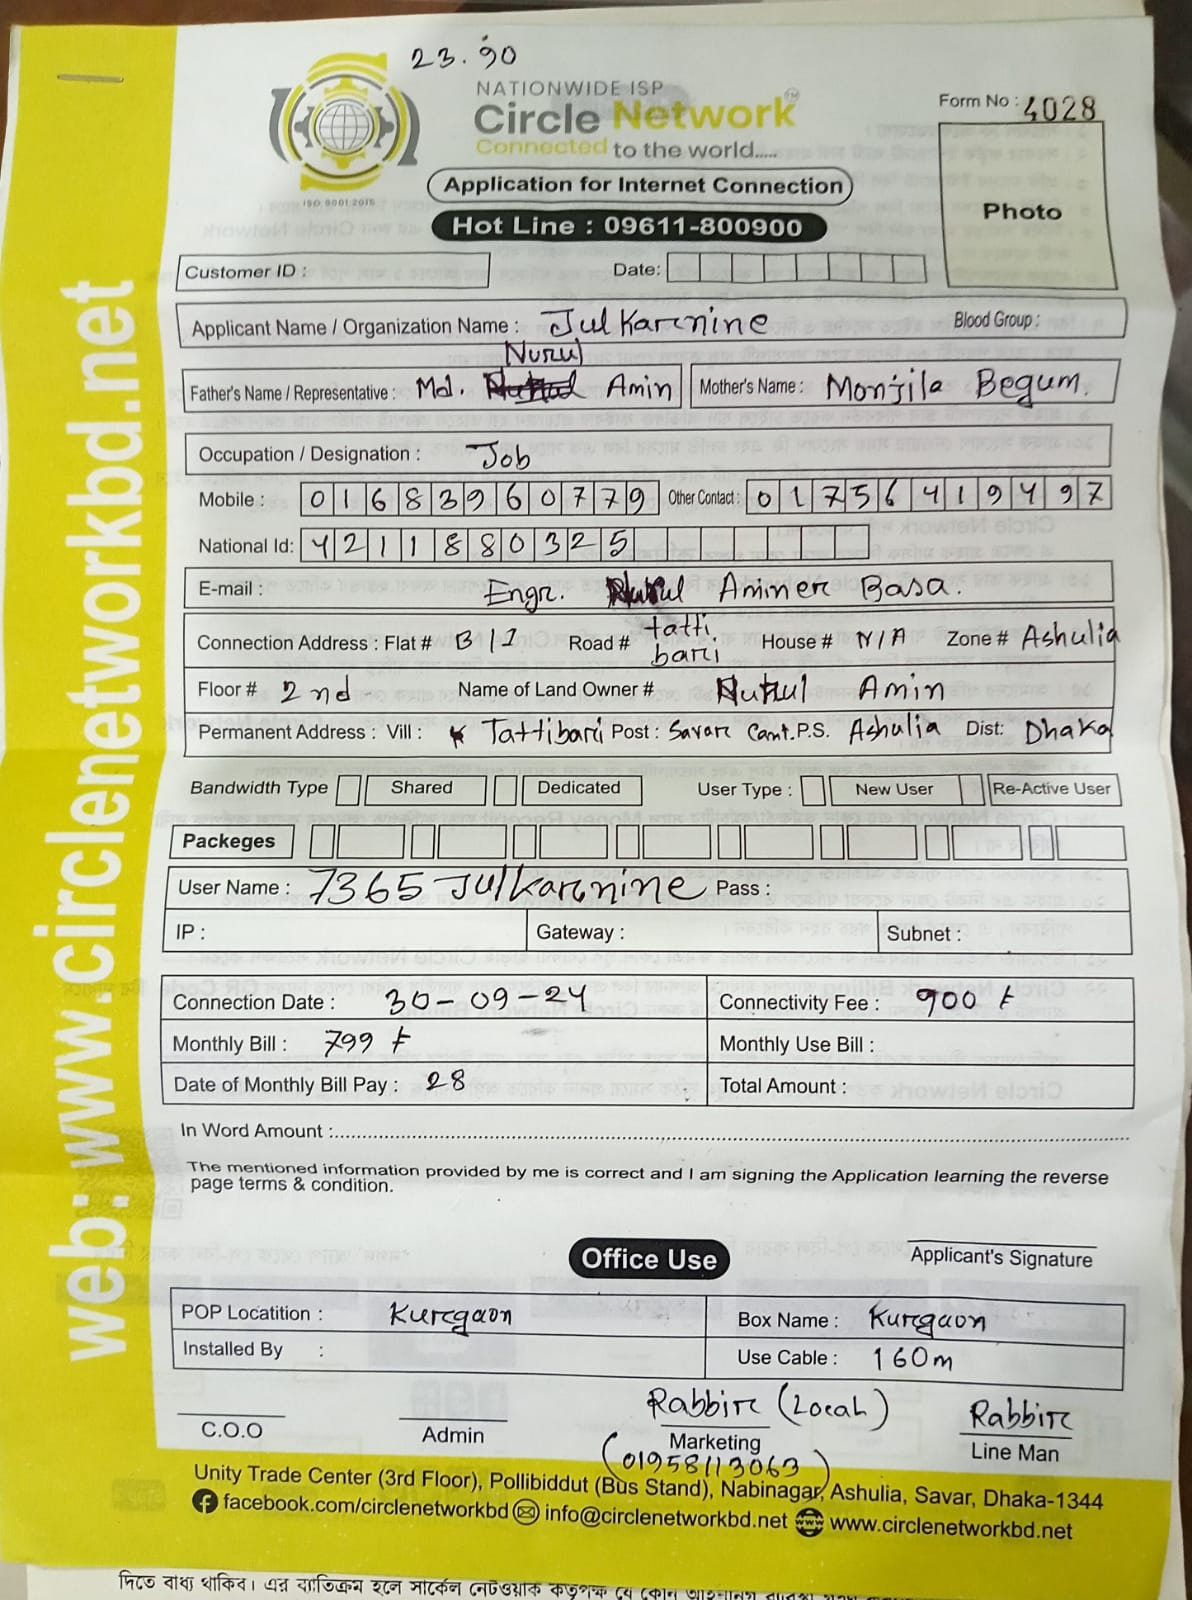 23.90
NATIONWIDE ISP
Circle Network™
Connected to the world.....
ISO 9001:2015
Form No : 4028
Application for Internet Connection
Photo
Hot Line : 09611-800900
Customer ID :
Date:
Applicant Name / Organization Name : Julkarnine Blood Group :
Nurul
Father's Name / Representative : Md. Amin Mother's Name : Monjila Begum.
Occupation / Designation : Job
Mobile : 01683960779 Other Contact : 01756419497
National Id: 4211880325
E-mail : Engr. Nurul Aminer Basa.
Connection Address : Flat # B/1 Road # tatti bari House # N/A Zone # Ashulia
Floor # 2nd Name of Land Owner # Nurul Amin
Permanent Address : Vill : Tattibari Post : Savar Cant. P.S. Ashulia Dist: Dhaka
Bandwidth Type Shared Dedicated User Type : New User Re-Active User
Packeges
User Name : 7365 Julkarnine Pass :
IP : Gateway : Subnet :
Connection Date : 30-09-24 Connectivity Fee : 900 ৳
Monthly Bill : 799 ৳ Monthly Use Bill :
Date of Monthly Bill Pay : 28 Total Amount :
In Word Amount :
The mentioned information provided by me is correct and I am signing the Application learning the reverse
page terms & condition.
Office Use
Applicant's Signature
POP Locatition : Kurgaon Box Name : Kurgaon
Installed By : Use Cable : 160m
Rabbir (Local) Rabbir
C.O.O Admin Marketing Line Man
(01958113063)
Unity Trade Center (3rd Floor), Pollibiddut (Bus Stand), Nabinagar, Ashulia, Savar, Dhaka-1344
facebook.com/circlenetworkbd info@circlenetworkbd.net www.circlenetworkbd.net
web: www.circlenetworkbd.net
দিতে বাধ্য থাকিব। এর ব্যতিক্রম হলে সার্কেল নেটওয়ার্ক কতৃপক্ষ যে কোন